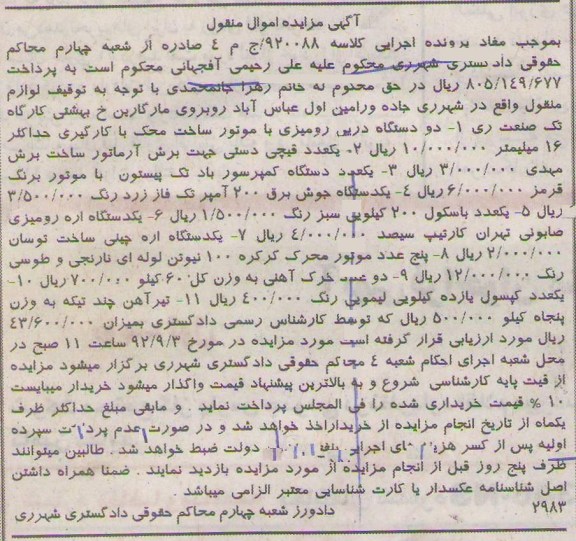 آگهی مزایده اموال منقول
بموجب مفاد پرونده اجرایی کلاسه ۹۲۰۰۸۸/ج م ٤ صادره از شعبه چهارم محاکم
حقوقی دادگستری شهرری محکوم علیه علی رحیمی آفجهانی محکوم است به پرداخت
۸۰۵/۱٤۹/٦۷۷ ریال در حق محکوم له خانم زهرا جانمحمدی با توجه به توقیف لوازم
منقول واقع در شهرری جاده ورامین اول عباس آباد روبروی مارگارین خ بهشتی کارگاه
تک صنعت ری ۱- دو دستگاه دریل رومیزی با موتور ساخت محک با کارگیری حداکثر
۱٦ میلیمتر ۱۰/۰۰۰/۰۰۰ ریال ۲- یکعدد قیچی دستی جهت برش آرماتور ساخت برش
مهدی ۳/۰۰۰/۰۰۰ ریال ۳- یکعدد دستگاه کمپرسور باد تک پیستون با موتور برنگ
قرمز ٦/۰۰۰/۰۰۰ ریال ٤- یکدستگاه جوش برق ۲۰۰ آمپر تک فاز زرد رنگ ۳/۵۰۰/۰۰۰
ریال ۵- یکعدد باسکول ۲۰۰ کیلویی سبز رنگ ۱/۵۰۰/۰۰۰ ریال ٦- یکدستگاه اره رومیزی
صابونی تهران کارتیپ سیصد ٤/۰۰۰/۰۰۰ ریال ۷- یکدستگاه اره چینی ساخت توسان
۲/۰۰۰/۰۰۰ ریال ۸- پنج عدد موتور محرک کرکره ۱۰۰ نیوتن لوله ای نارنجی و طوسی
رنگ ۱۲/۰۰۰/۰۰۰ ریال ۹- دو عدد خرک آهنی به وزن کل ٦۰ کیلو ۷۰۰/۰۰۰ ریال ۱۰-
یکعدد کپسول یازده کیلویی لیمویی رنگ ٤۰۰/۰۰۰ ریال ۱۱- تیرآهن چند تیکه به وزن
پنجاه کیلو ۵۰۰/۰۰۰ ریال که توسط کارشناس رسمی دادگستری بمیزان ٤۳/٦۰۰/۰۰۰
ریال مورد ارزیابی قرار گرفته است مورد مزایده در مورخ ۹۲/۹/۳ ساعت ۱۱ صبح در
محل شعبه اجرای احکام شعبه ٤ محاکم حقوقی دادگستری شهرری برگزار میشود مزایده
از قیت پایه کارشناسی شروع و به بالاترین پیشنهاد قیمت واگذار میشود خریدار میبایست
۱۰ % قیمت خریداری شده را فی المجلس پرداخت نماید . و مابقی مبلغ حداکثر ظرف
یکماه از تاریخ انجام مزایده از خریداراخذ خواهد شد و در صورت عدم پرداخت سپرده
اولیه پس از کسر هزینه های اجرایی بنفع دولت ضبط خواهد شد. طالبین میتوانند
ظرف پنج روز قبل از انجام مزایده از مورد مزایده بازدید نمایند . ضمنا همراه داشتن
اصل شناسنامه عکسدار یا کارت شناسایی معتبر الزامی میباشد .
۲۹۸۳ دادورز شعبه چهارم محاکم حقوقی دادگستری شهرری